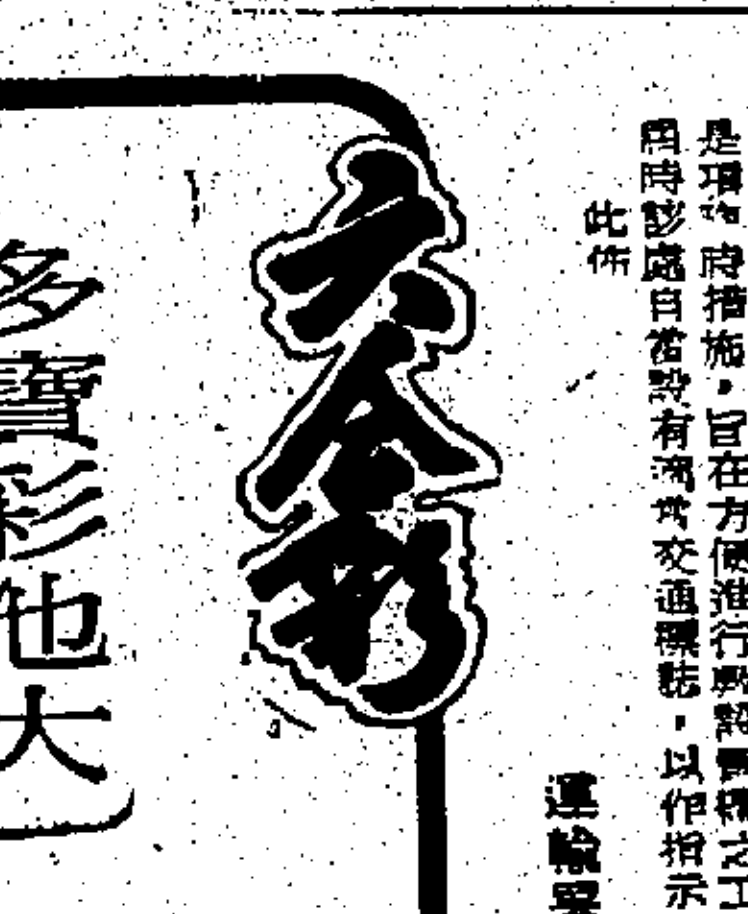 是項 時措施，旨在方便進行 之工
同時該處自當設有 交通標誌，以作指示
此佈
運輸署
六合彩
多寶彩池大